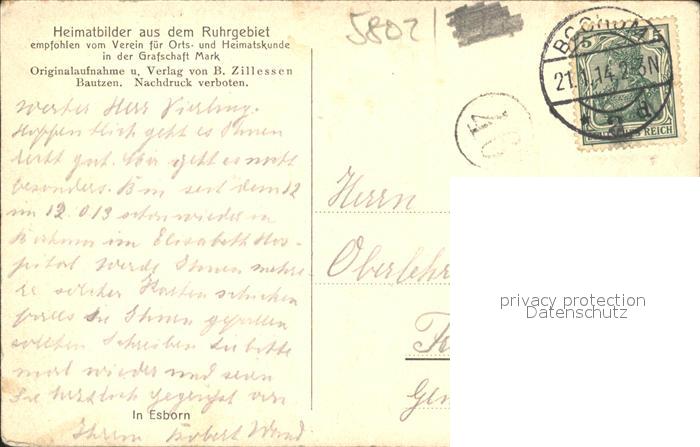 Heimatbilder aus dem Ruhrgebiet
empfohlen vom Verein für Orts- und Heimatskunde
in der Grafschaft Mark
Originalaufnahme u. Verlag von B. Zillessen
Bautzen. Nachdruck verboten.
5802
BOCHUM
21.1.14.2-3N
DEUTSCHES REICH
Werter Herr Vierling.
Hoffentlich geht es Ihnen
recht gut. Mir geht es nicht
besonders. Bin seit dem 12
im 12. 013 schon wieder in
Bochum im Elisabeth Hos-
pital. Werde Ihnen mehre-
re solcher Karten schicken
falls sie Ihnen gefallen
sollten. Schreiben Sie bitte
mal wieder und seien
Sie herzlich gegrüsst von
Ihrem Robert
Herrn
Oberlehr
In Esborn
privacy protection
Datenschutz